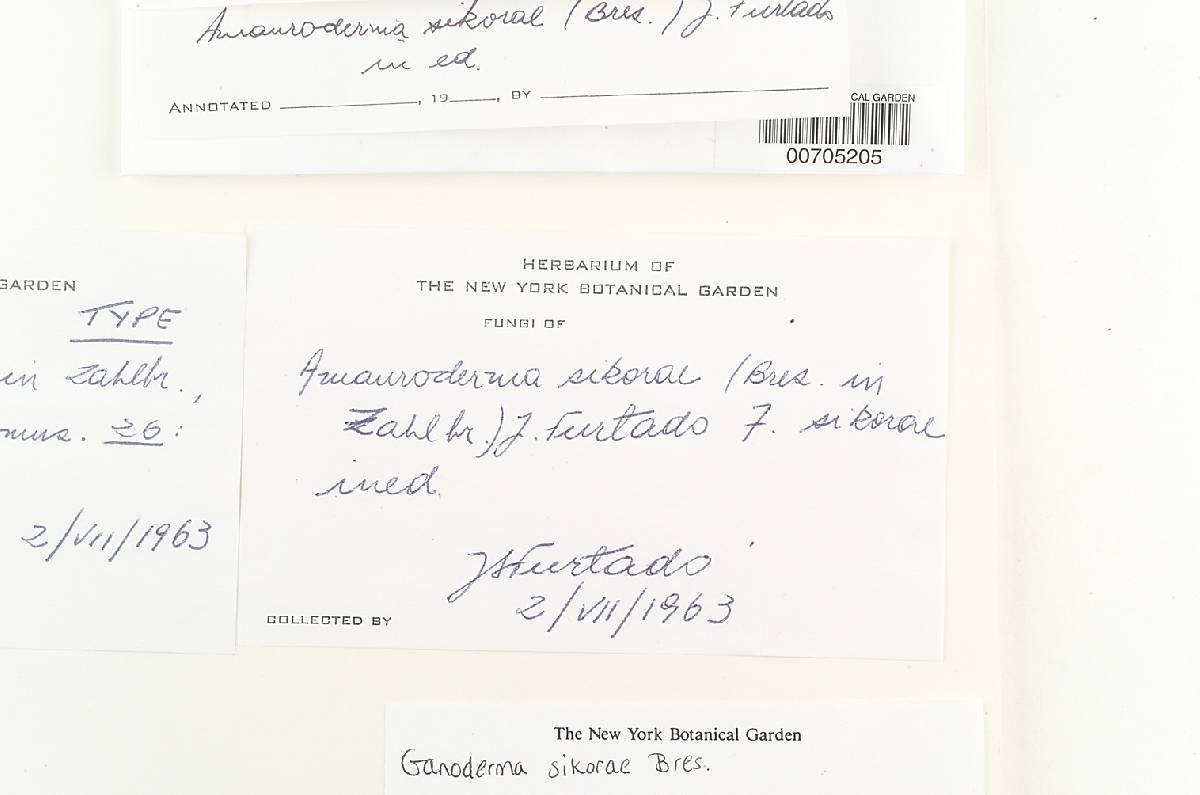 Amauroderma sikorae (Bres.) J. Furtado
in ed.
ANNOTATED ____, 19____, BY ____
CAL GARDEN
00705205
GARDEN
TYPE
in Zahlbr.,
mus. 26:
2/VII/1963
HERBARIUM OF
THE NEW YORK BOTANICAL GARDEN
FUNGI OF
Amauroderma sikorae (Bres. in
Zahlbr.) J. Furtado F. sikorae
ined.
JSFurtado
2/VII/1963
COLLECTED BY
The New York Botanical Garden
Ganoderma sikorae Bres.